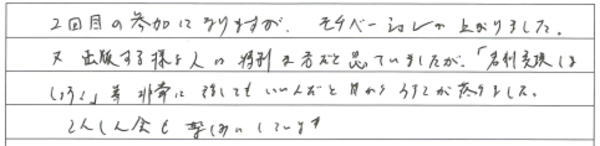 2回目の参加になりますが、モチベーションが上がりました。
又 出版する様な人は特別な方だと思っていましたが、「名刺交換は
しょうく」等 非常に 強しても いいんだと 目から うろこが落ちました。
こんしん会も 楽しみにしています